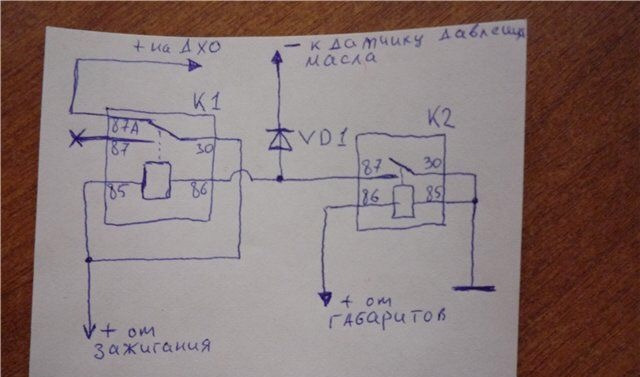 + на ДХО
– к датчику давления
масла
К1
К2
87А
87
30
VD1
87
30
85
86
86
85
+ от
зажигания
+ от
габаритов